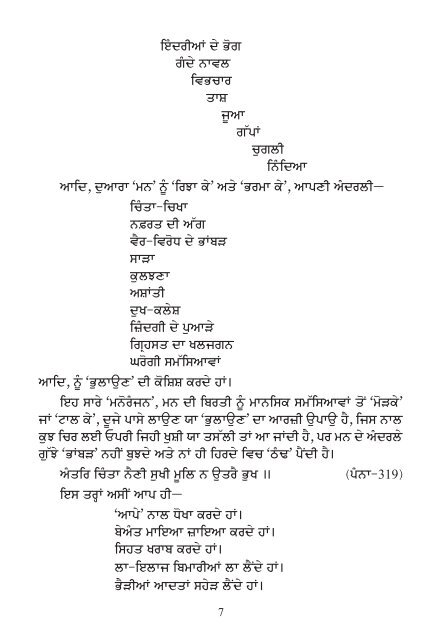 ਇੰਦਰੀਆਂ ਦੇ ਭੋਗ
ਗੰਦੇ ਨਾਵਲ
ਵਿਭਚਾਰ
ਤਾਸ਼
ਜੂਆ
ਗੱਪਾਂ
ਚੁਗਲੀ
ਨਿੰਦਿਆ
ਆਦਿ, ਦੁਆਰਾ ‘ਮਨ’ ਨੂੰ ‘ਰਿਝਾ ਕੇ’ ਅਤੇ ‘ਭਰਮਾ ਕੇ’, ਆਪਣੀ ਅੰਦਰਲੀ—
ਚਿੰਤਾ-ਚਿਖਾ
ਨਫ਼ਰਤ ਦੀ ਅੱਗ
ਵੈਰ-ਵਿਰੋਧ ਦੇ ਭਾਂਬੜ
ਸਾੜਾ
ਕੁਲਝਣਾ
ਅਸ਼ਾਂਤੀ
ਦੁਖ-ਕਲੇਸ਼
ਜ਼ਿੰਦਗੀ ਦੇ ਪੁਆੜੇ
ਗ੍ਰਿਹਸਤ ਦਾ ਖਲਜਗਨ
ਘਰੋਗੀ ਸਮੱਸਿਆਵਾਂ
ਆਦਿ, ਨੂੰ ‘ਭੁਲਾਉਣ’ ਦੀ ਕੋਸ਼ਿਸ਼ ਕਰਦੇ ਹਾਂ।
ਇਹ ਸਾਰੇ ‘ਮਨੋਰੰਜਨ’, ਮਨ ਦੀ ਬਿਰਤੀ ਨੂੰ ਮਾਨਸਿਕ ਸਮੱਸਿਆਵਾਂ ਤੋਂ ‘ਮੋੜਕੇ’
ਜਾਂ ‘ਟਾਲ ਕੇ’, ਦੂਜੇ ਪਾਸੇ ਲਾਉਣ ਯਾ ‘ਭੁਲਾਉਣ’ ਦਾ ਆਰਜ਼ੀ ਉਪਾਉ ਹੈ, ਜਿਸ ਨਾਲ
ਕੁਝ ਚਿਰ ਲਈ ਓਪਰੀ ਜਿਹੀ ਖੁਸ਼ੀ ਯਾ ਤਸੱਲੀ ਤਾਂ ਆ ਜਾਂਦੀ ਹੈ, ਪਰ ਮਨ ਦੇ ਅੰਦਰਲੇ
ਗੁੱਝੇ ‘ਭਾਂਬੜ’ ਨਹੀਂ ਬੁਝਦੇ ਅਤੇ ਨਾਂ ਹੀ ਹਿਰਦੇ ਵਿਚ ‘ਠੰਢ’ ਪੈਂਦੀ ਹੈ।
ਅੰਤਰਿ ਚਿੰਤਾ ਨੈਣੀ ਸੁਖੀ ਮੂਲਿ ਨ ਉਤਰੈ ਭੁਖ ॥ (ਪੰਨਾ-319)
ਇਸ ਤਰ੍ਹਾਂ ਅਸੀਂ ਆਪ ਹੀ—
‘ਆਪੇ’ ਨਾਲ ਧੋਖਾ ਕਰਦੇ ਹਾਂ।
ਬੇਅੰਤ ਮਾਇਆ ਜ਼ਾਇਆ ਕਰਦੇ ਹਾਂ।
ਸਿਹਤ ਖਰਾਬ ਕਰਦੇ ਹਾਂ।
ਲਾ-ਇਲਾਜ ਬਿਮਾਰੀਆਂ ਲਾ ਲੈਂਦੇ ਹਾਂ।
ਭੈੜੀਆਂ ਆਦਤਾਂ ਸਹੇੜ ਲੈਂਦੇ ਹਾਂ।
7